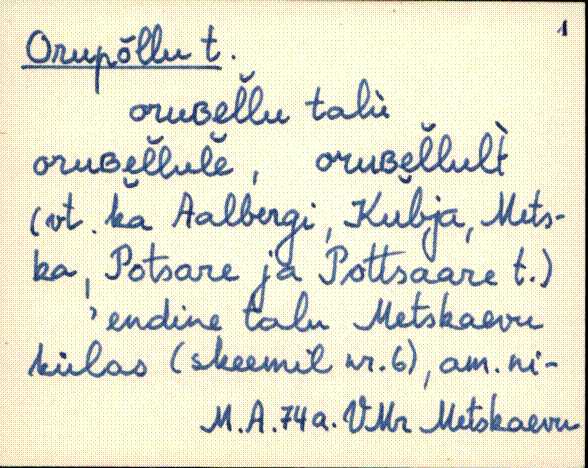 1
Orupõllu t.
oruʙel̆lu talù
oruʙel̆lulĕ, oruʙel̆lult̀
(vt. ka Aalbergi, Kubja, Mets-
ka, Potsare ja Pottsaare t.)
'endine talu Metskaevu
külas (skeemil nr. 6), am. ni-
M.A. 74a. VMr Metskaevu